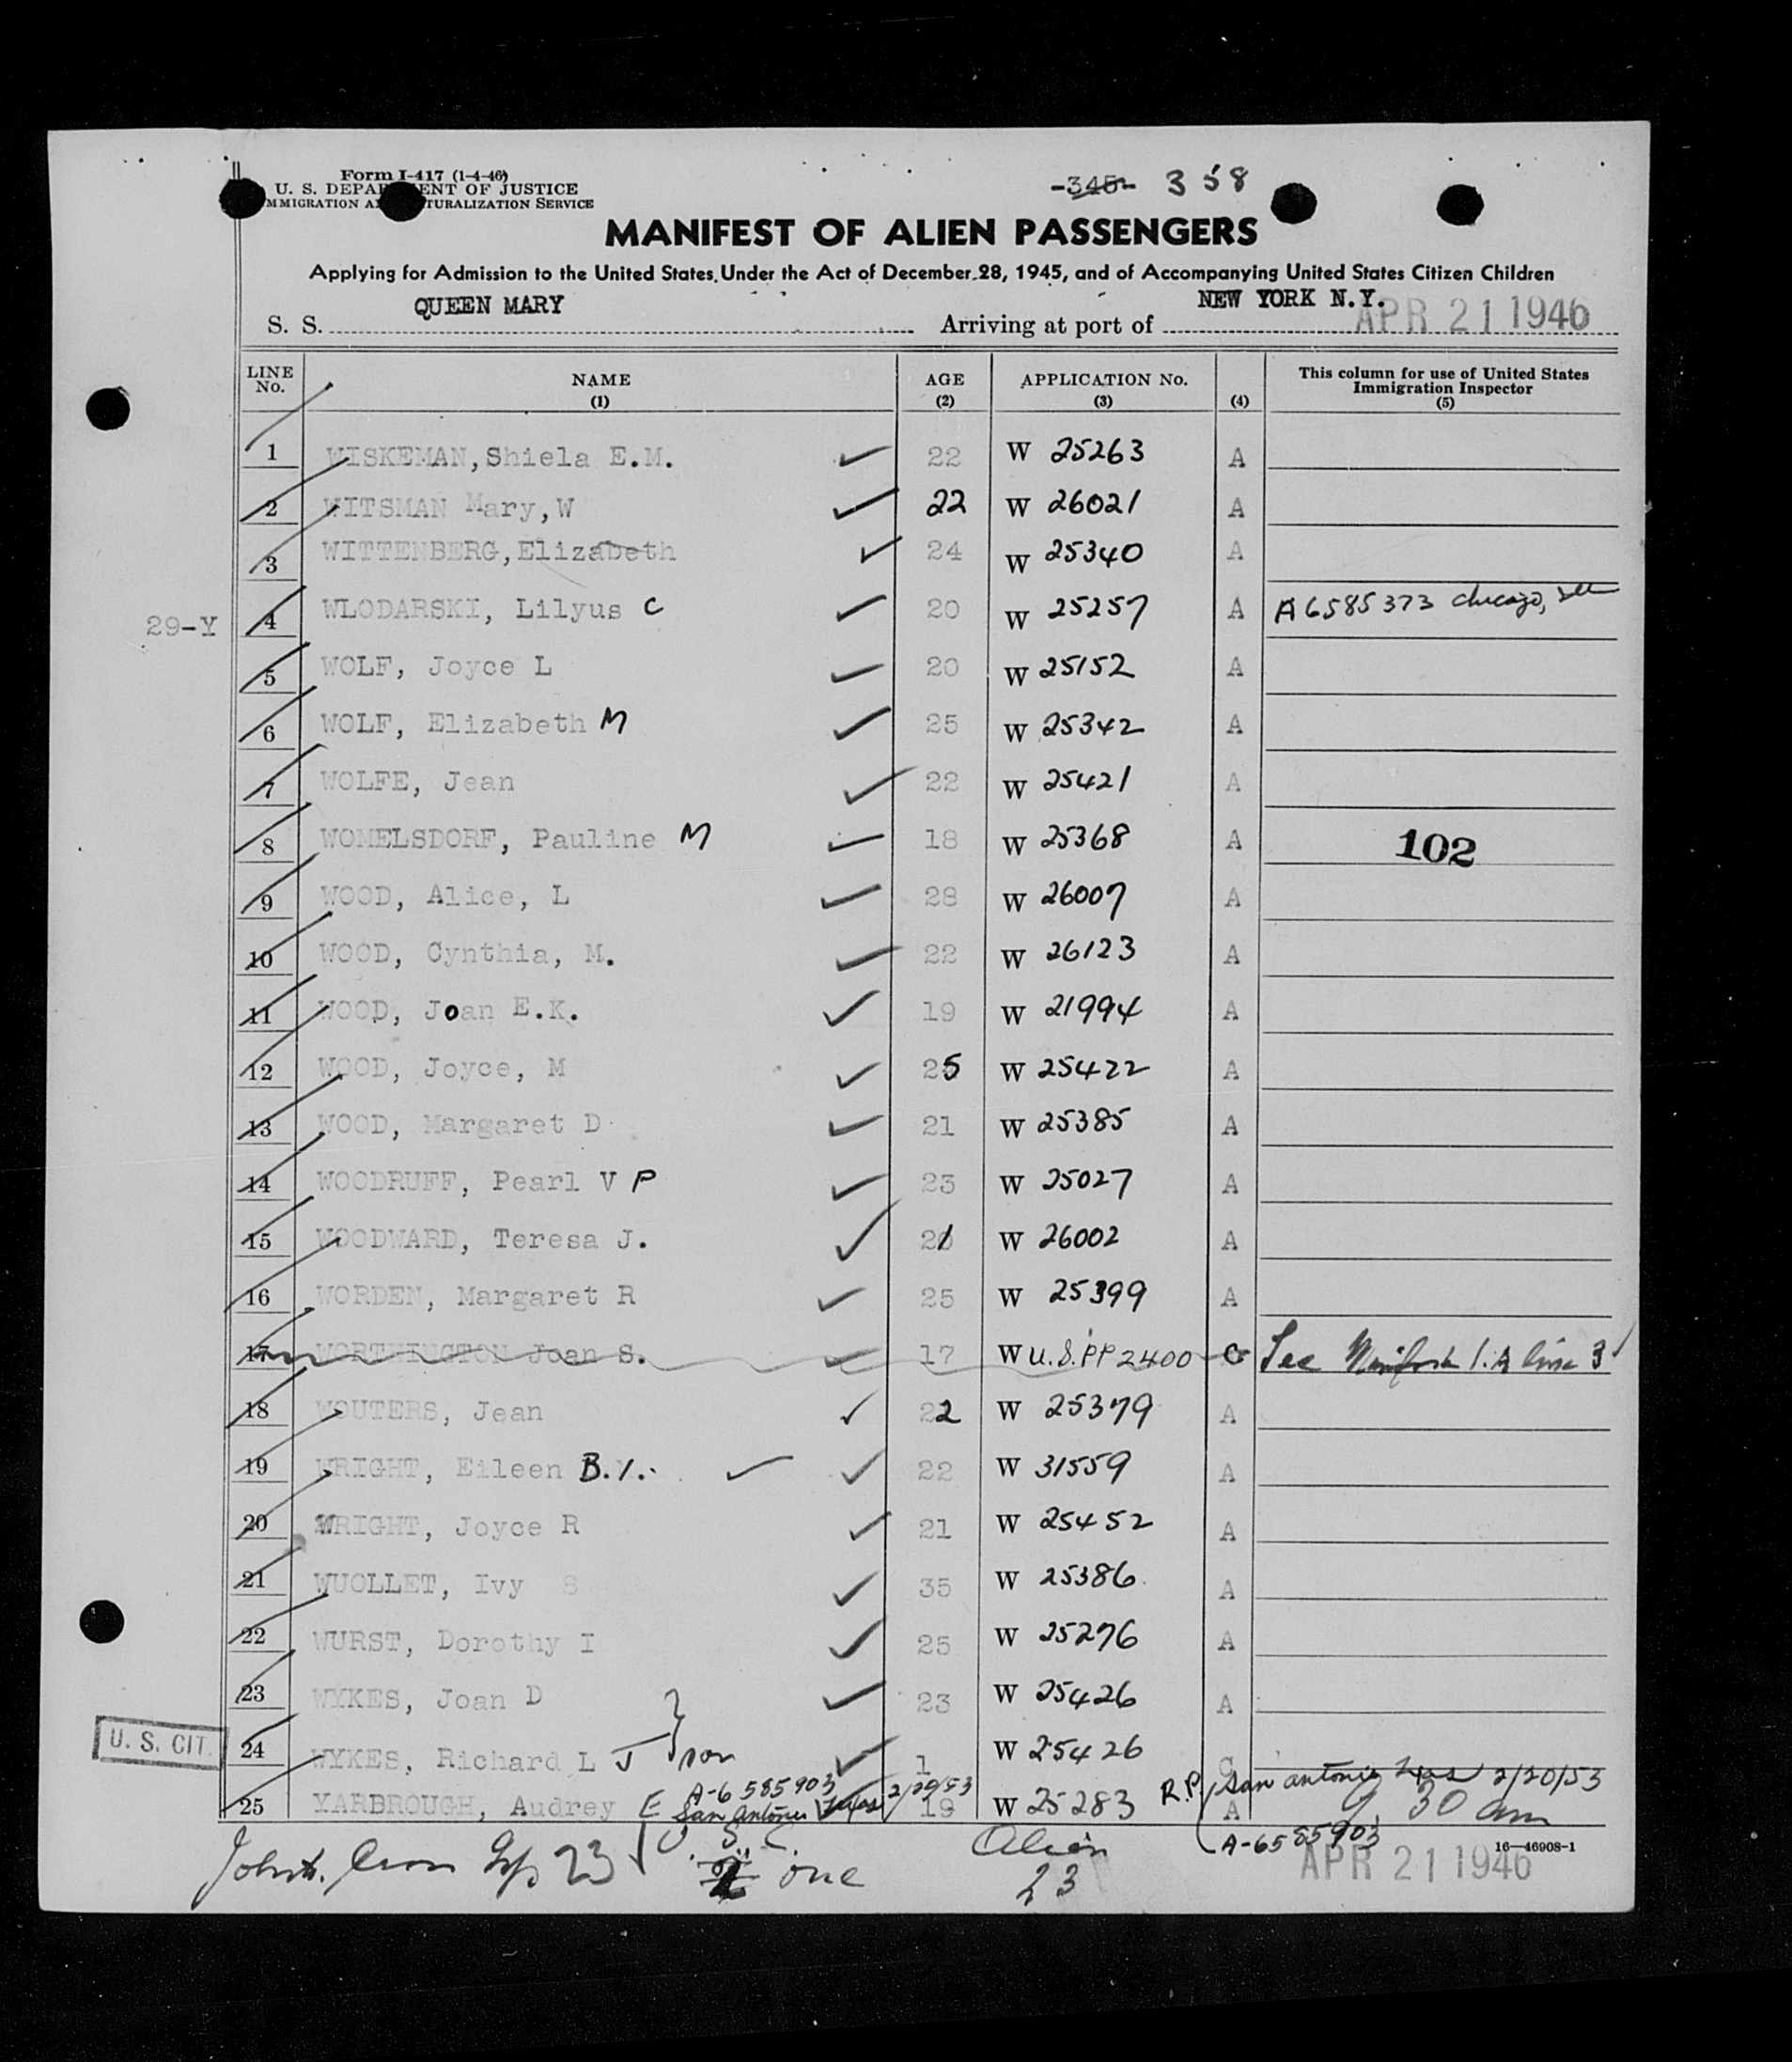 Form I-417 (1-4-46)
U. S. DEPARTMENT OF JUSTICE
IMMIGRATION AND NATURALIZATION SERVICE
-345- 358
MANIFEST OF ALIEN PASSENGERS
Applying for Admission to the United States Under the Act of December 28, 1945, and of Accompanying United States Citizen Children
S. S. QUEEN MARY Arriving at port of NEW YORK N.Y. APR 21 1946
LINE No. NAME (1) AGE (2) APPLICATION No. (3) (4) This column for use of United States Immigration Inspector (5)
1 WISKEMAN, Shiela E.M. 22 W 25263 A
2 WITSMAN Mary, W 22 W 26021 A
3 WITTENBERG, Elizabeth 24 W 25340 A
29-Y 4 WLODARSKI, Lilyus C 20 W 25257 A A6585373 Chicago, Ill
5 WOLF, Joyce L 20 W 25152 A
6 WOLF, Elizabeth M 25 W 25342 A
7 WOLFE, Jean 22 W 25421 A
8 WOMELSDORF, Pauline M 18 W 25368 A 102
9 WOOD, Alice, L 28 W 26007 A
10 WOOD, Cynthia, M. 22 W 26123 A
11 WOOD, Joan E.K. 19 W 21994 A
12 WOOD, Joyce, M 25 W 25422 A
13 WOOD, Margaret D 21 W 25385 A
14 WOODRUFF, Pearl V P 23 W 25027 A
15 WOODWARD, Teresa J. 21 W 26002 A
16 WORDEN, Margaret R 25 W 25399 A
17 WORTHINGTON Joan S. 17 W U.S.PP 2400 C See Manifest 1.A line 3
18 WOUTERS, Jean 22 W 25379 A
19 WRIGHT, Eileen B.Y. 22 W 31559 A
20 WRIGHT, Joyce R 21 W 25452 A
21 WUOLLET, Ivy S 35 W 25386 A
22 WURST, Dorothy I 25 W 25276 A
23 WYKES, Joan D 23 W 25426 A
U. S. CIT. 24 WYKES, Richard L J } son 1 W 25426 C
A-6585903 2/20/53 R.P. San Antonio Texas 2/20/53
25 YARBROUGH, Audrey E San Antonio Texas 19 W 25283 A 9 30 am
U. S. C. Alien A-6585903 16—46908-1
23 one 23 APR 21 1946